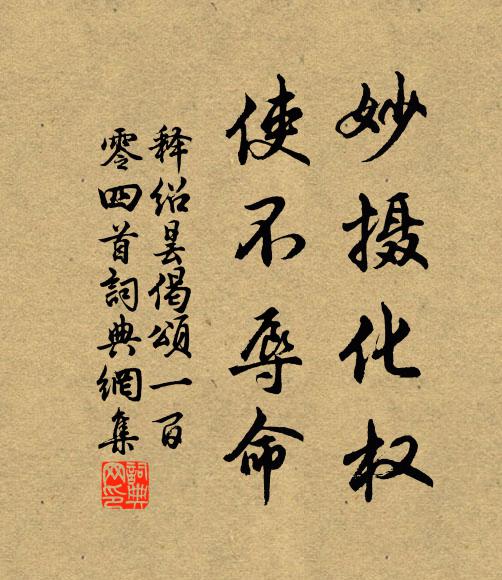 妙摄化权
使不辱命
释绍昙偈頌一百
零四首詞典網集
詞典
网印